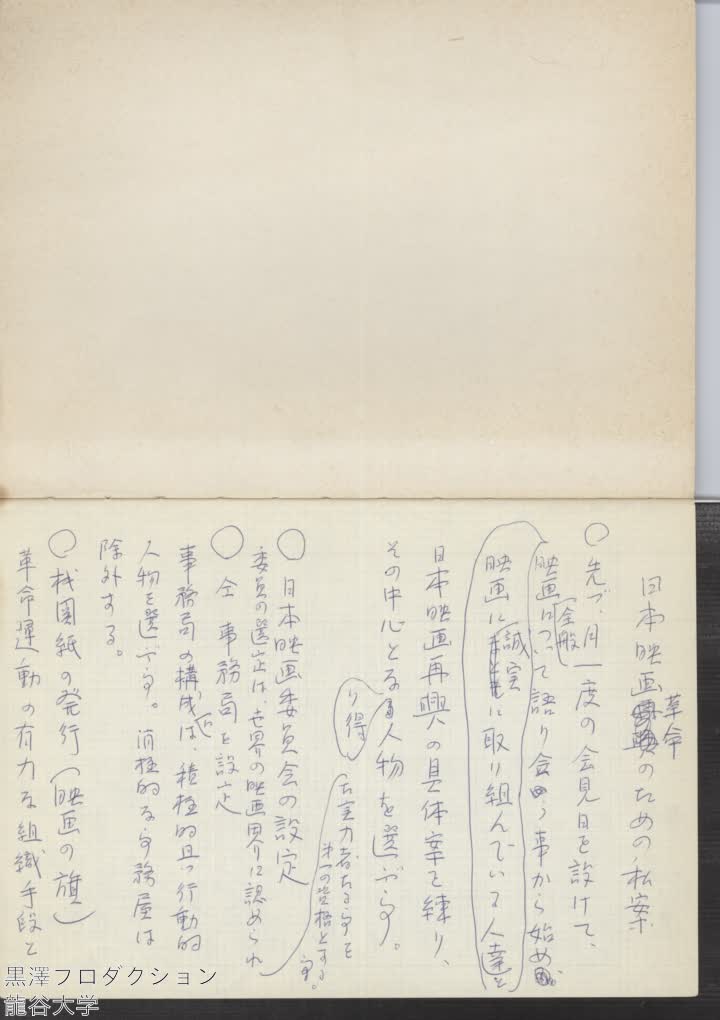 日本映画革命のための私案
○先づ、月一度の会見日を設けて、
映画全般について語り会う事から始め、
映画に誠実に取り組んでいる人達と
日本映画再興の具体案を練り、
その中心となり得る人物を選ぶ事。
○日本映画委員会の設定
委員の選定は、世界の映画界に認められ
た実力者たる事を
第一の資格とする
事。
○仝 事務局を設定
事務局の構成は、積極的且つ行動的
人物を選ぶ事。消極的な事務屋は
除外する。
○機関紙の発行(映画の旗)
革命運動の有力な組織手段と
黒澤プロダクション
龍谷大学